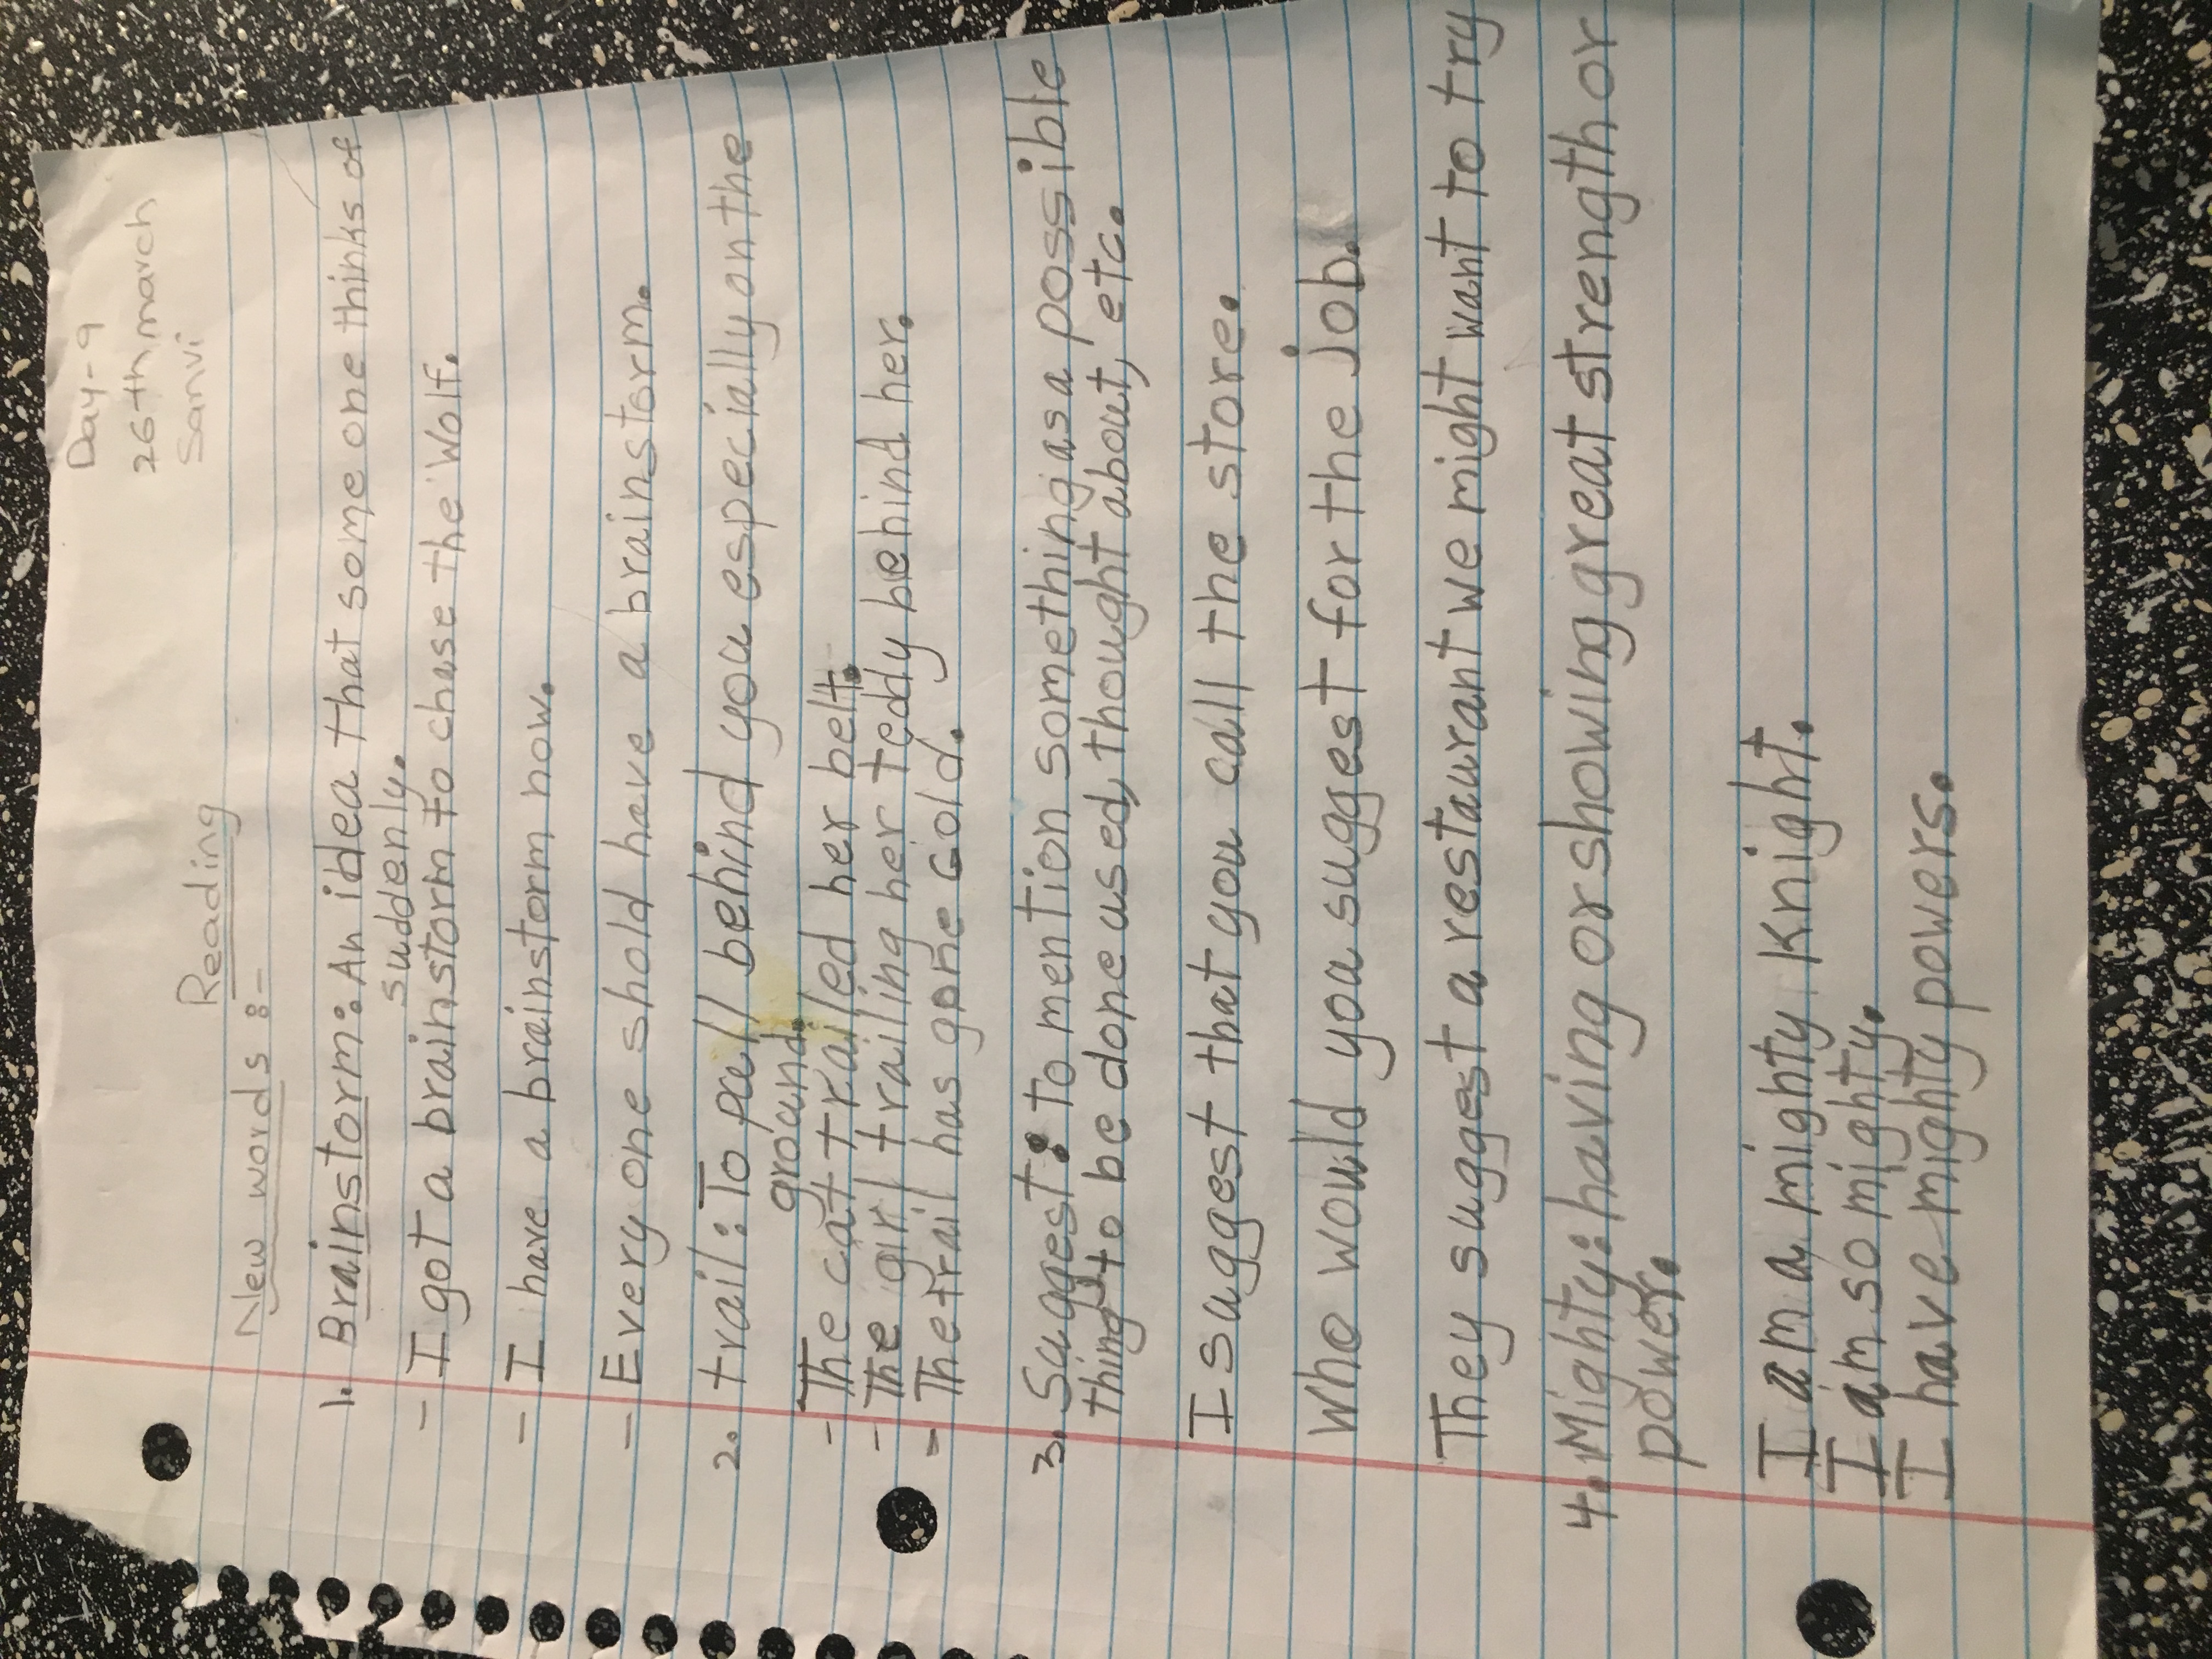 Day-9
26th march
Sanvi
Reading
New words :-
1. Brainstorm: An idea that some one thinks of
suddenly.
- I got a brainstorm to chase the Wolf.
- I have a brainstorm now.
- Every one shold have a brainstorm.
2. trail: To pull behind you especially on the
ground.
- The cat trailed her belt.
- The girl trailing her teddy behind her.
- The trail has gone Gold.
3. Suggest: to mention something as a possible
thing to be done used, thought about, etc.
I suggest that you call the store.
Who would you suggest for the job.
They suggest a restaurant we might want to try
4. Mighty: having or showing great strength or
power.
I am a mighty Knight.
I am so mighty.
I have mighty powers.